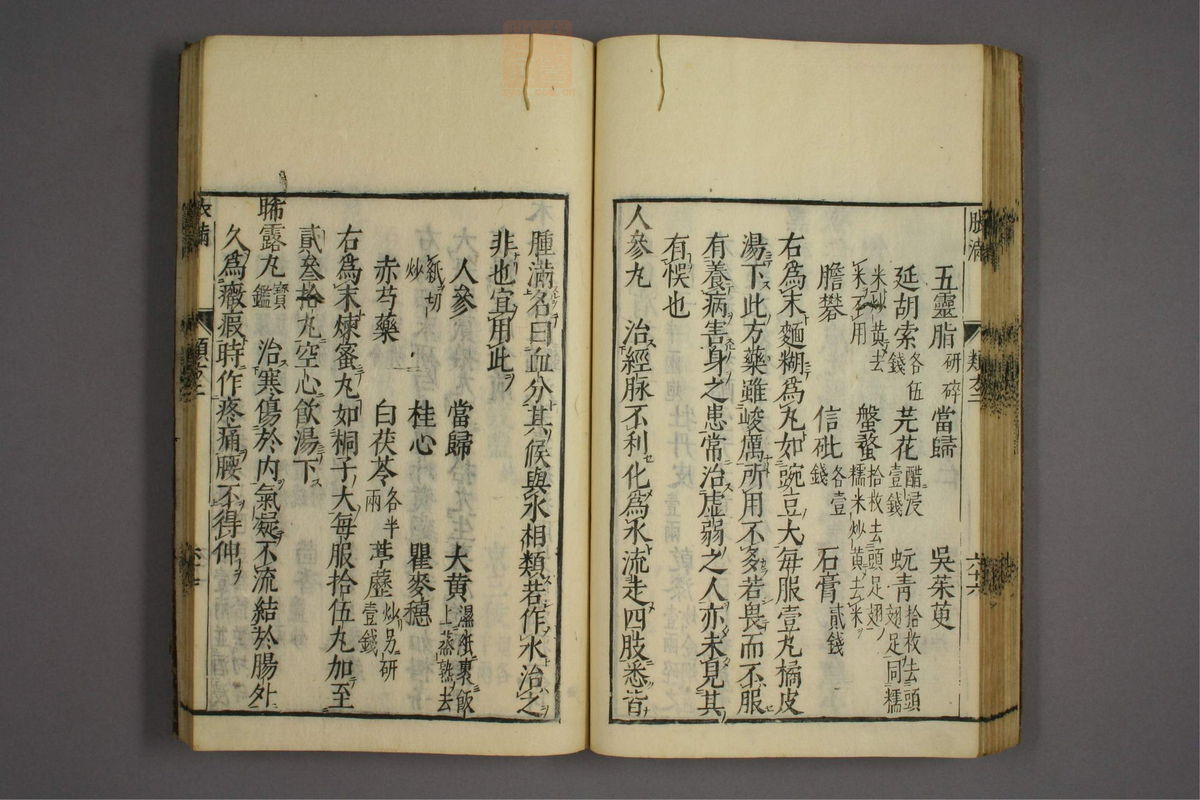 五靈脂研碎 當歸 吳茱萸
延胡索各伍錢 芫花醋浸壹錢 蚖青拾枚去頭翅足同糯
米炒黃去米不用 盤蝥拾枚去頭足翅糯米炒黃去米
膽礬 信砒各壹錢 石膏貳錢
右爲末麵糊爲丸如豌豆大每服壹丸橘皮
湯下此方藥雖峻厲所用不多若畏而不服
有養病害身之患常治虛弱之人亦未見其
有悞也
人參丸 治經脉不利化爲水流走四肢悉皆
腫滿名曰血分其候與水相類若作水治之
非也宜用此
人參 當歸 大黃濕紙裹飯上蒸熟去
紙切炒 桂心 瞿麥穗
赤芍藥 白茯苓各半兩 葶藶炒另研壹錢
右爲末煉蜜丸如桐子大每服拾伍丸加至
貳叁拾丸空心飲湯下
晞露丸寶鑑 治寒傷於内氣凝不流結於腸外
久爲癥瘕時作疼痛腰不得伸